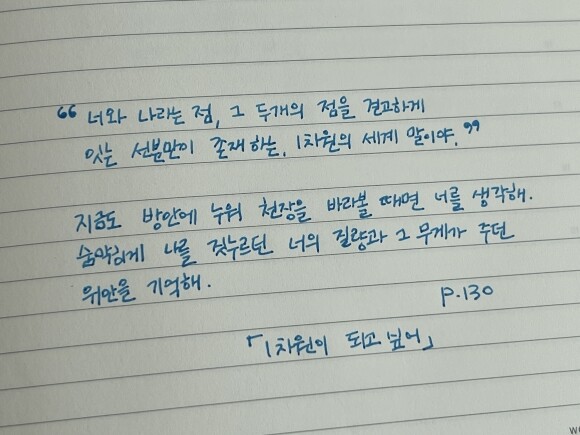 “너와 나라는 점, 그 두개의 점을 견고하게
잇는 선분만이 존재하는, 1차원의 세계 말이야.”
지금도 방안에 누워 천장을 바라볼 때면 너를 생각해.
숨막히게 나를 짓누르던 너의 질량과 그 무게가 주던
위안을 기억해.
P.130
「1차원이 되고 싶어」